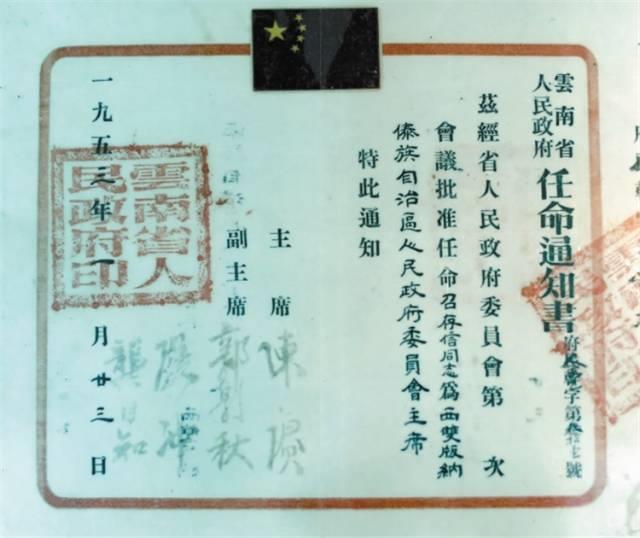 雲南省
人民政府
任命通知書
字第
號
茲經省人民政府委員會第 次
會議批准任命召存信同志為西雙版納
傣族自治區人民政府委員會主席
特此通知
主席 陳賡
副主席 郭影秋
張冲
龔自知
一九五三年一月廿三日
雲南省人
民政府印